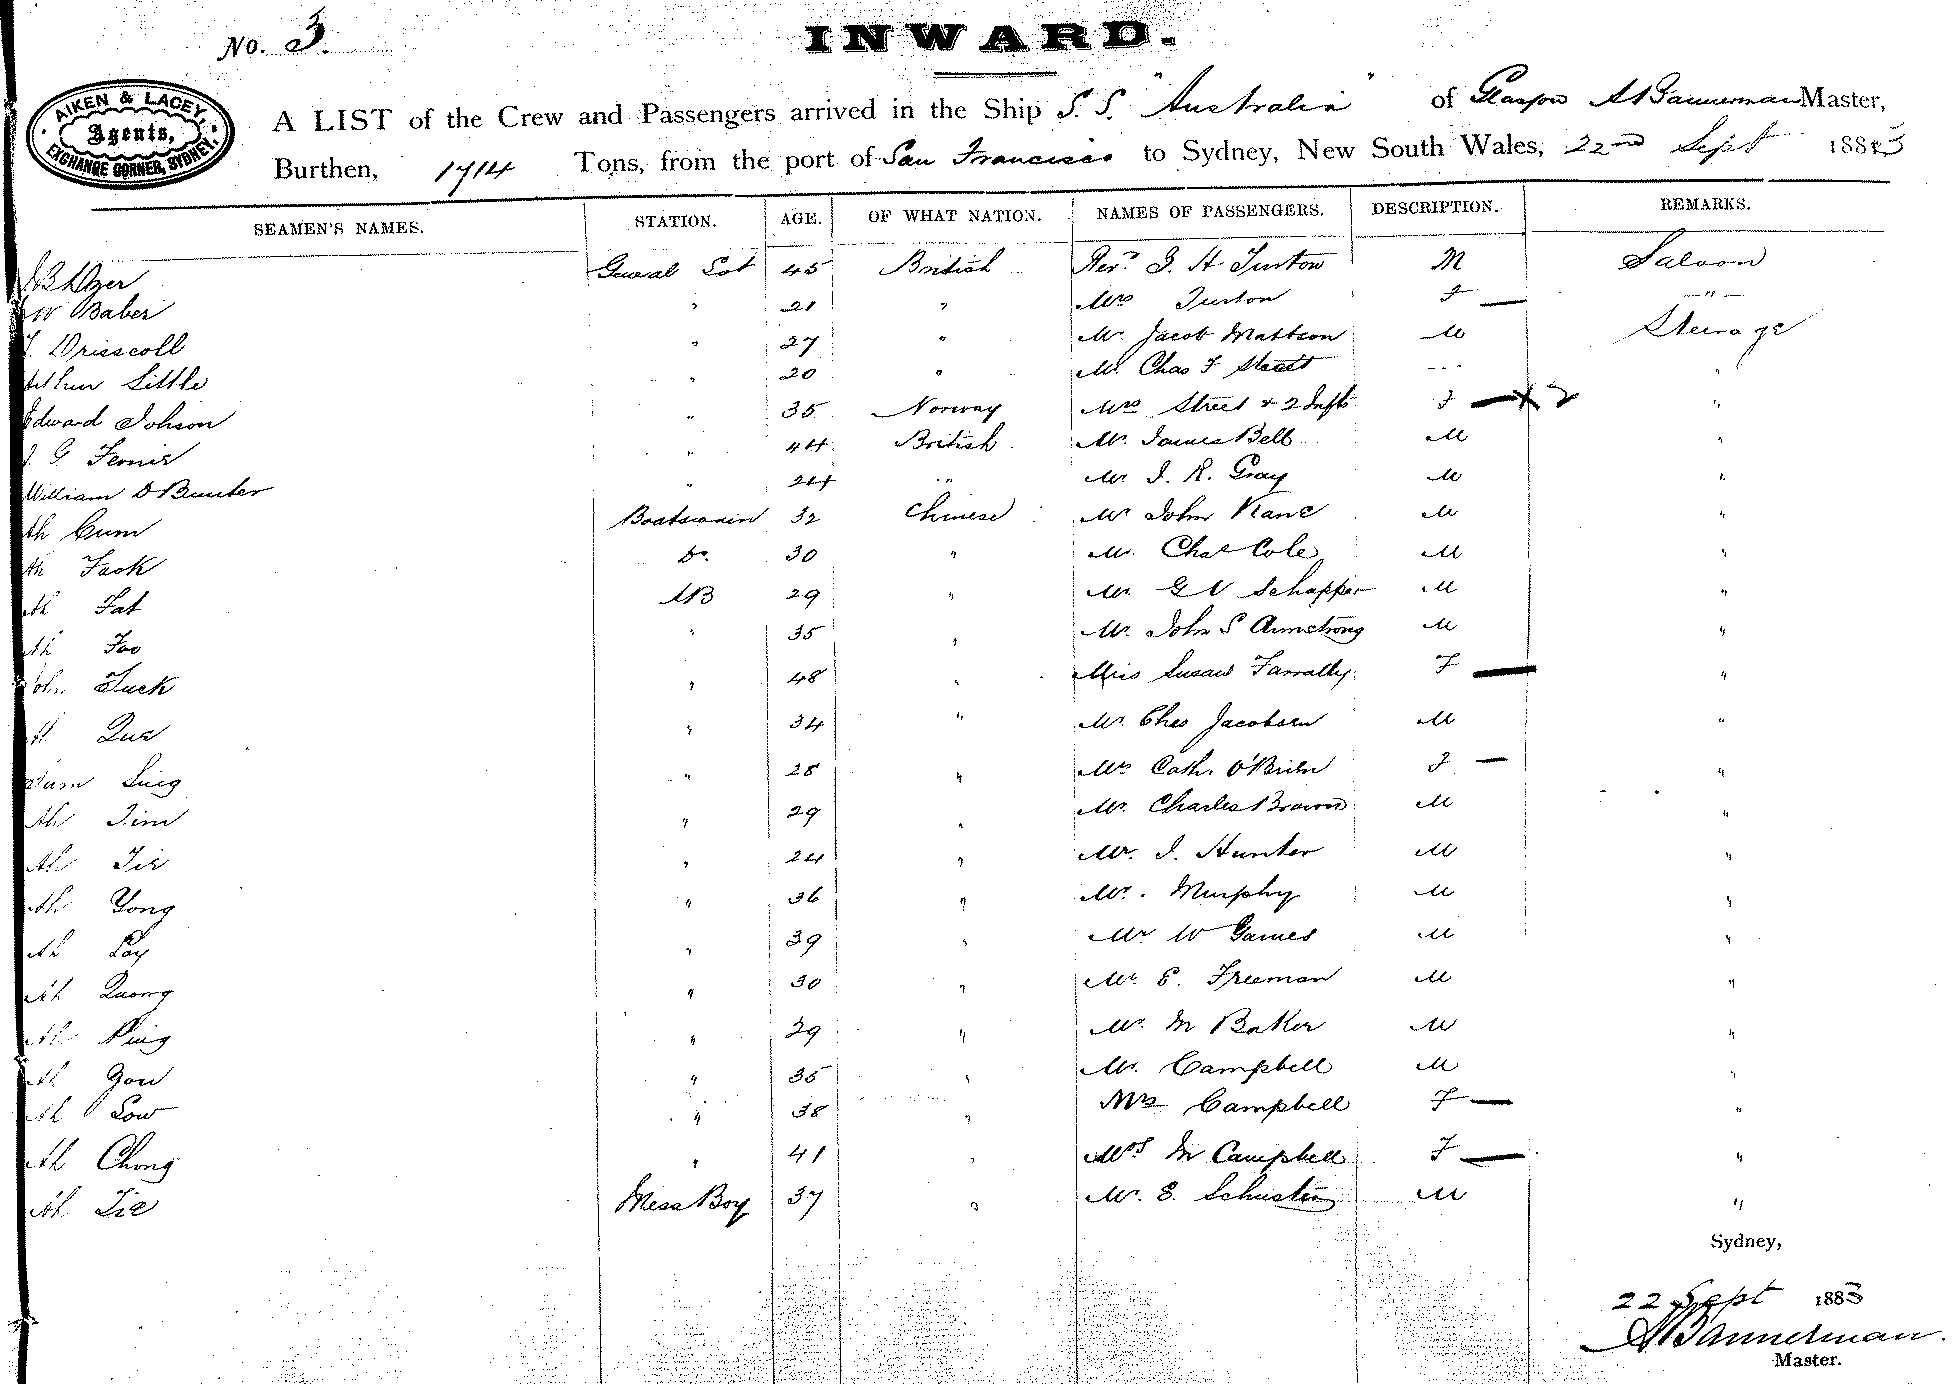 No. 3.
INWARD.
AIKEN & LACEY,
Agents,
EXCHANGE CORNER, SYDNEY,
A LIST of the Crew and Passengers arrived in the Ship S.S. "Australia" of Glasgow A Bannerman Master,
Burthen, 1714 Tons, from the port of San Francisco to Sydney, New South Wales, 22nd Sept 1883
SEAMEN'S NAMES. STATION. AGE. OF WHAT NATION. NAMES OF PASSENGERS. DESCRIPTION. REMARKS.
45 British Revd. J. H Turton M Saloon
Baber " 21 " Mrs Turton F — "
Drisscoll " 27 " Mr. Jacob Mattson M Steerage
Arthur Little " 20 " Mr. Chas F Street "
Edward Johson " 35 Norway Mrs Street + 2 Infts F — x 2 "
J. G. " 44 British Mr. James Bell M "
William D Bunter " 24 " Mr J. R. Gray M "
Ah Gum Boatswain 32 Chinese Mr John Kane M "
Ah Fook Do. 30 " Mr. Chas Cole M "
Ah Fat AB 29 " Mr. G V Schapper M "
Ah Foo " 35 " Mr. John S Armstrong M "
John Tuck " 48 " Miss Susan Farrally F — "
Ah Que " 34 " Mr. Chas Jacobsen M "
Sing " 28 " Mrs Cath. O'Brien F — "
Ah Tim " 29 " Mr. Charles Brown M "
Ah Tie " 24 " Mr. J. Hunter M "
Ah Yong " 36 " Mr. Murphy M "
Ah Loy " 39 " Mr W Games M "
Ah Quong " 30 " Mr. E. Freeman M "
Ah Ping " 29 " Mr. M Baker M "
Ah You " 35 " Mr. Campbell M "
Ah Low " 38 " Mrs Campbell F — "
Ah Chong " 41 " Mrs M Campbell F — "
Ah Tie Mess Boy 37 " Mr. E. Schuster M "
Sydney,
22 Sept 1883
A Bannerman.
Master.